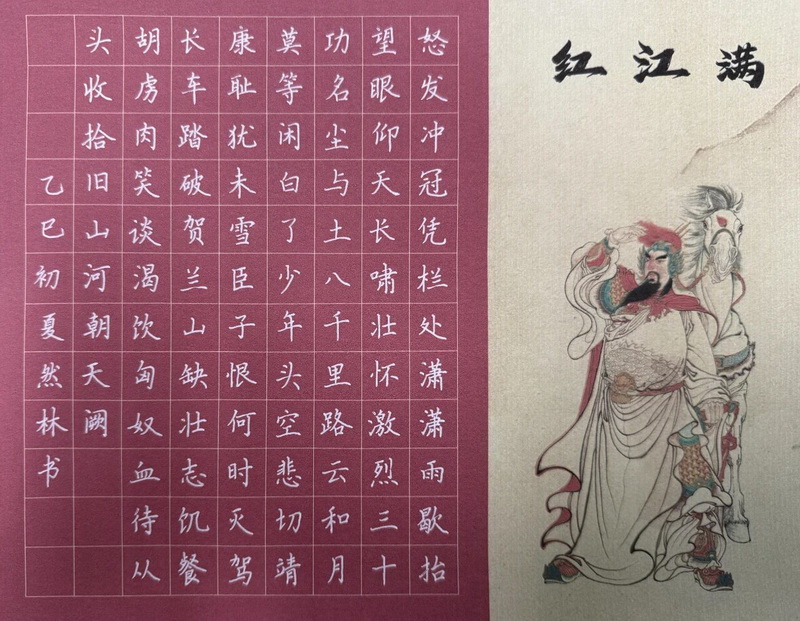 满江红
怒发冲冠凭栏处潇潇雨歇抬
望眼仰天长啸壮怀激烈三十
功名尘与土八千里路云和月
莫等闲白了少年头空悲切靖
康耻犹未雪臣子恨何时灭驾
长车踏破贺兰山缺壮志饥餐
胡虏肉笑谈渴饮匈奴血待从
头收拾旧山河朝天阙
乙巳初夏然林书